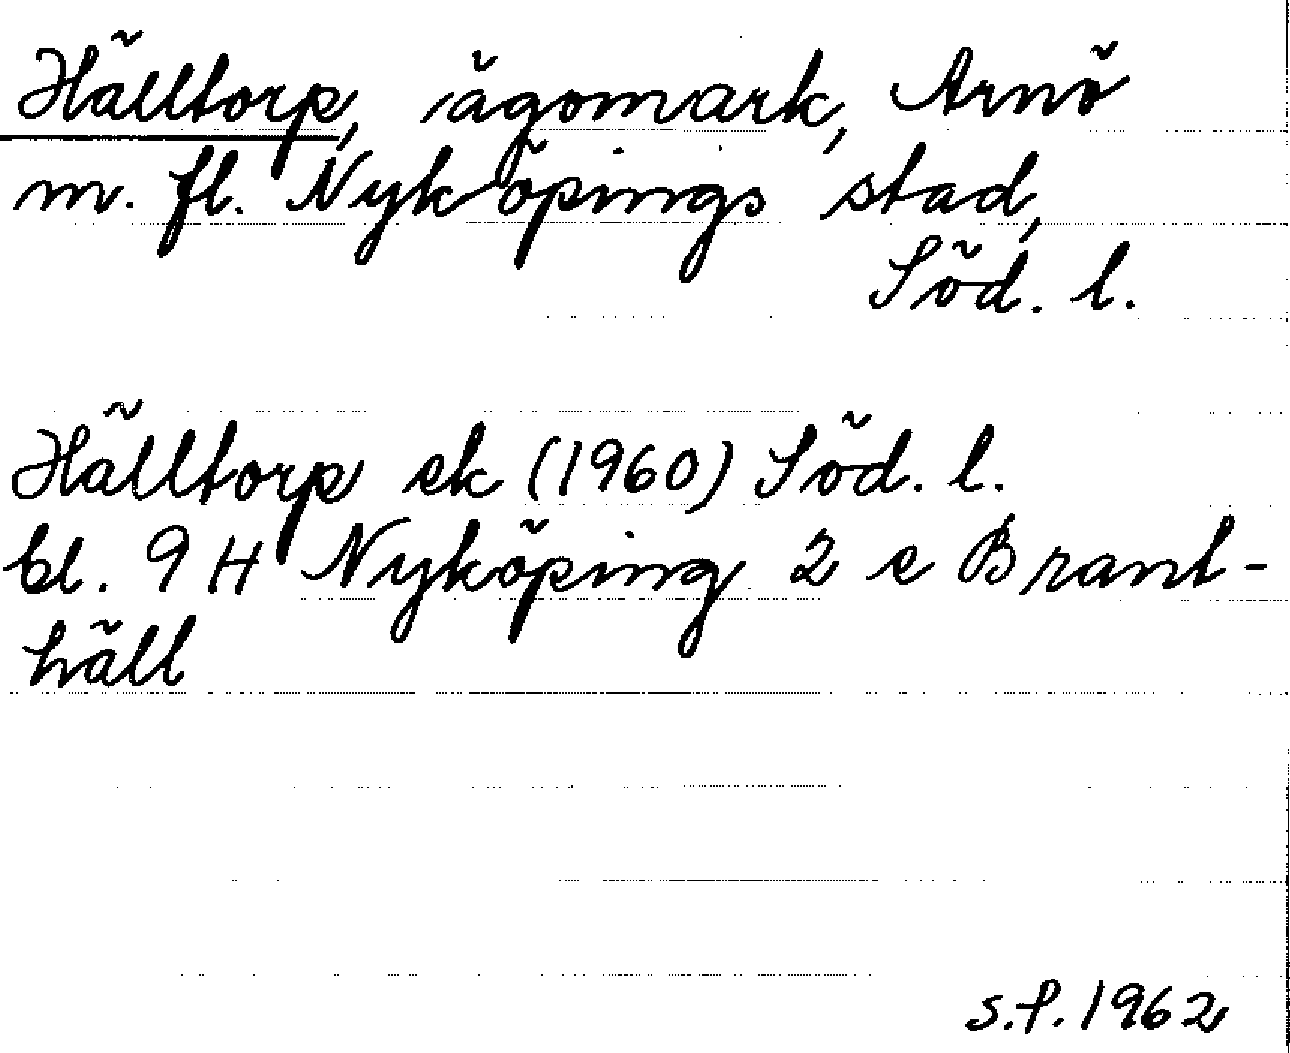 Hälltorp, ägomark, Arnö
m. fl. Nyköpings stad,
Söd. l.
Hälltorp ek (1960) Söd. l.
bl. 9 H Nyköping 2 e Brant-
häll
S.P. 1962